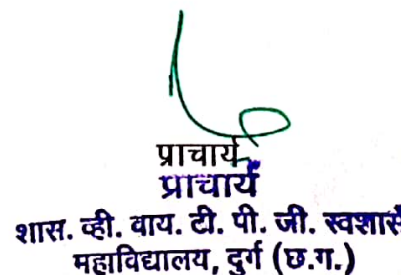 प्राचार्य
प्राचार्य
शास. व्ही. वाय. टी. पी. जी.
महाविद्यालय, दुर्ग (छ.ग.)